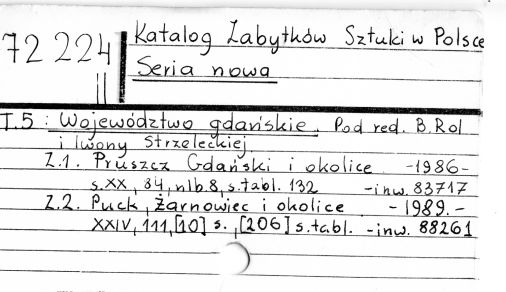 72 224
II
Katalog Zabytków Sztuki w Polsce
Seria nowa
T.5 : Województwo gdańskie. Pod red. B. Rol
i Iwony Strzeleckiej
Z.1. Pruszcz Gdański i okolice -1986-
s. XX, 84, nlb. 8, s. tabl. 132 -inw. 83717
Z.2. Puck, Żarnowiec i okolice - 1989.-
XXIV, 111, [10] s., [206] s. tabl. -inw. 88261